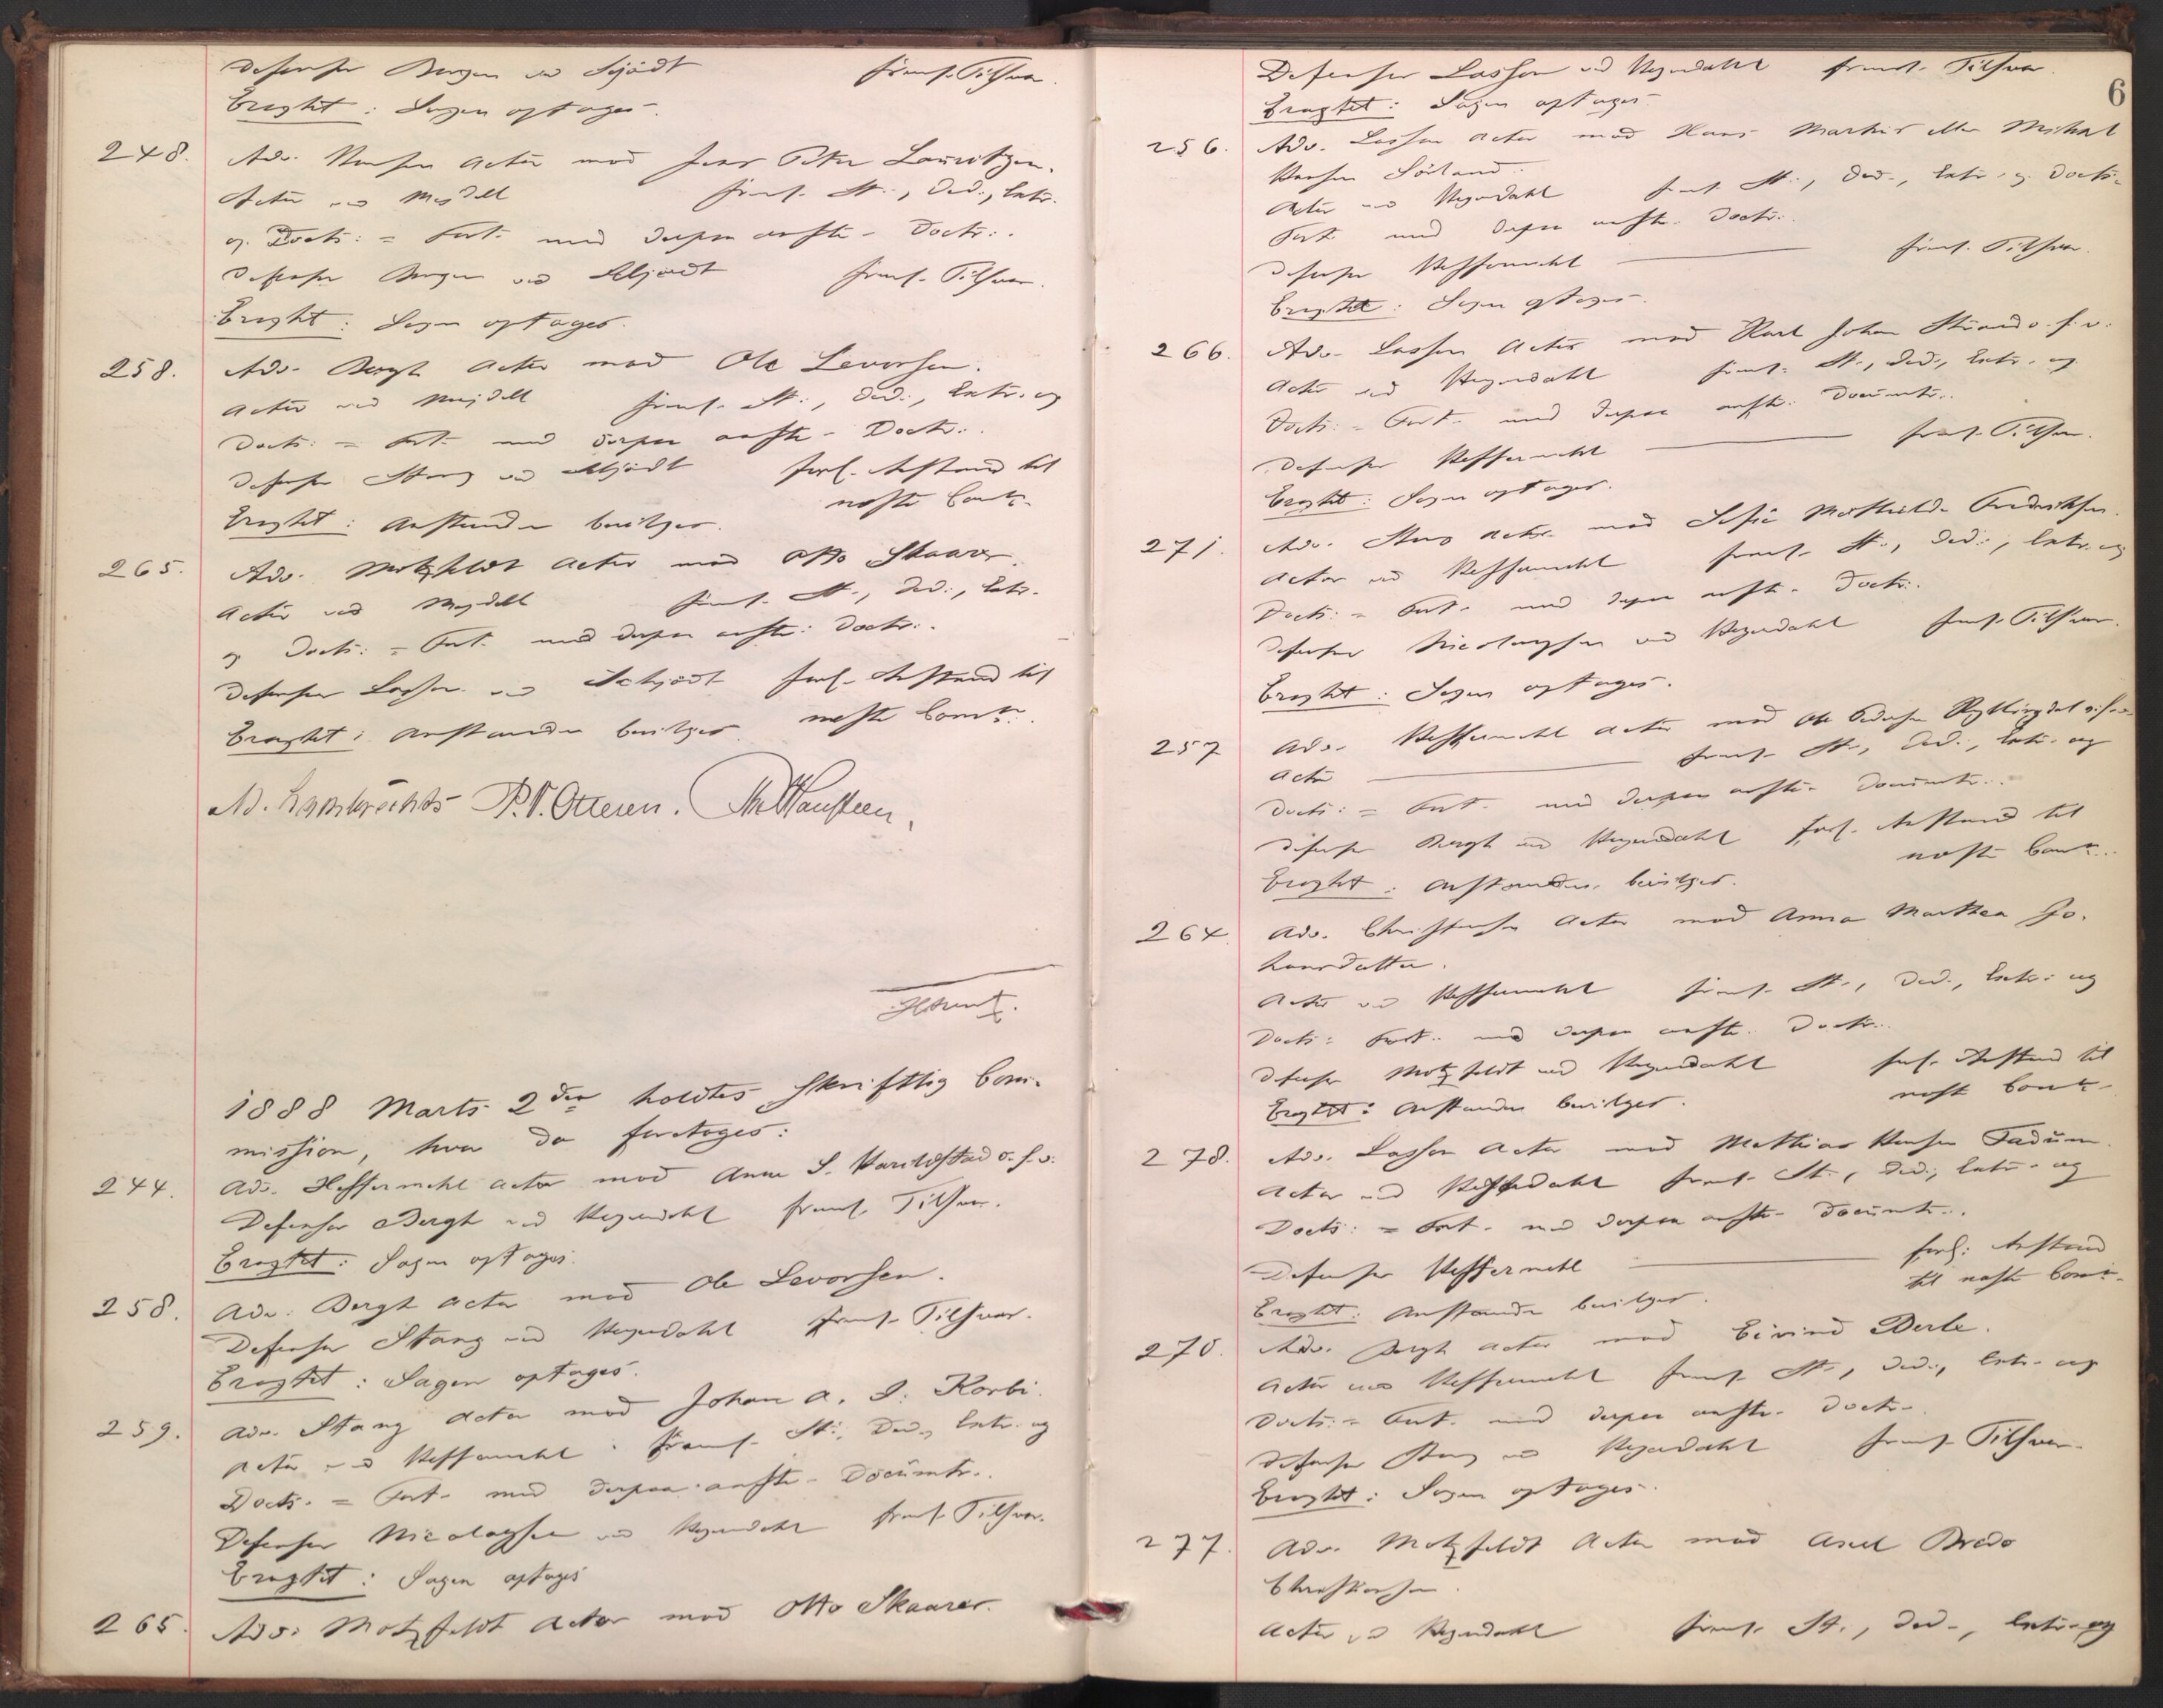 Defensor Bergen ved Schjødt freml. Tilsvar.
Eragtet: Sagen optages.
248. Adv. Hansen Actor mod Jens Peter Lauritzen.
Actor ved Mejdell freml. St., Ded., Extr.
og Docts: = Fort. med derpaa anførte Doctr:.
Defensor Bergen ved Schjødt freml. Tilsvar.
Eragtet: Sagen optages.
258. Adv. Bergh Actor mod Ole Levorsen.
Actor ved Mejdell freml. St., Ded., Extr. og
Docts: = Fort. med derpaa anførte Doctr:.
Defensor Stang ved Schjødt forl. Anstand til
næste Comn.
Eragtet: Anstanden bevilges.
265. Adv. Motzfeldt Actor mod Otto Skaarer.
Actor ved Mejdell freml. St., Ded., Extr.
og Docts: = Fort. med derpaa anførte Doctr:.
Defensor Lasson ved Schjødt forl. Anstand til
Eragtet: Anstanden bevilges. næste Comn.
Ad. Lambrechts P.V. Otteren.
1888 Marts 2den holdtes skriftlig Com-
mission, hvor da foretoges:
244. Adv. Heffermehl Actor mod Anne S. Harildstad o.fl.
Defensor Bergh ved Heyerdahl freml. Tilsvar.
Eragtet: Sagen optages.
258. Adv. Bergh Actor mod Ole Levorsen.
Defensor Stang ved Heyerdahl freml. Tilsvar.
Eragtet: Sagen optages.
259. Adv. Stang Actor mod Johan A. I. Korbi.
Actor ved Heffermehl freml. St., Ded., Extr. og
Docts. = Fort. med derpaa anførte Documtr.
Defensor Nicolaysen ved Heyerdahl freml. Tilsvar.
Eragtet: Sagen optages
265. Adv. Motzfeldt Actor mod Otto Skaarer.
6
Defensor Lasson ved Heyerdahl freml. Tilsvar.
Eragtet: Sagen optages.
256. Adv. Lasson Actor mod Hans Markus eller Mikal
Hansen Sörland.
Actor ved Heyerdahl freml. St., Ded., Extr. og Docts.
Fort. med derpaa anførte Doctr:.
Defensor Heffermehl freml. Tilsvar.
Eragtet: Sagen optages.
266. Adv. Lasson Actor mod Karl Johan Strand o.fl.
Actor ved Heyerdahl freml. St., Ded., Extr. og
Docts: = Fort. med derpaa anførte Documtr.
Defensor Heffermehl freml. Tilsvar.
Eragtet: Sagen optages.
271. Adv. Actor mod Sofie Mathilde Fredriksen.
Actor ved Heffermehl freml. St., Ded., Extr. og
Docts: = Fort. med derpaa anførte Doctr:.
Defensor Nicolaysen ved Heyerdahl freml. Tilsvar.
Eragtet: Sagen optages.
257 Adv. Heffermehl Actor mod Ole Pedersen o.fl.
Actor freml. St., Ded., Extr. og
Docts: = Fort. med derpaa anførte Documtr.
Defensor Bergh ved Heyerdahl forl. Anstand til
næste Comn.
Eragtet: Anstanden bevilges.
264. Adv. Christensen Actor mod Anna Marthea Jo-
hansdatter.
Actor ved Heffermehl freml. St., Ded., Extr. og
Docts: Fort. med derpaa anførte Doctr.
Defensor Motzfeldt ved Heyerdahl forl. Anstand til
Eragtet: Anstanden bevilges. næste Comn.
278. Adv. Lasson Actor mod Mathias Hansen Fadum.
Actor ved Heyerdahl freml. St., Ded., Extr. og
Docts: = Fort. med derpaa anførte Documtr.
Defensor Heffermehl forl. Anstand
til næste Comn.
Eragtet: Anstanden bevilges.
270. Adv. Bergh Actor mod Eivind Berle.
Actor ved Heffermehl freml. St., Ded., Extr. og
Docts: = Fort. med derpaa anførte Doctr.
Defensor Stang ved Heyerdahl freml. Tilsvar.
Eragtet: Sagen optages.
277. Adv. Motzfeldt Actor mod Axel Bredo
Christensen.
Actor ved Heyerdahl freml. St., Ded., Extr. og